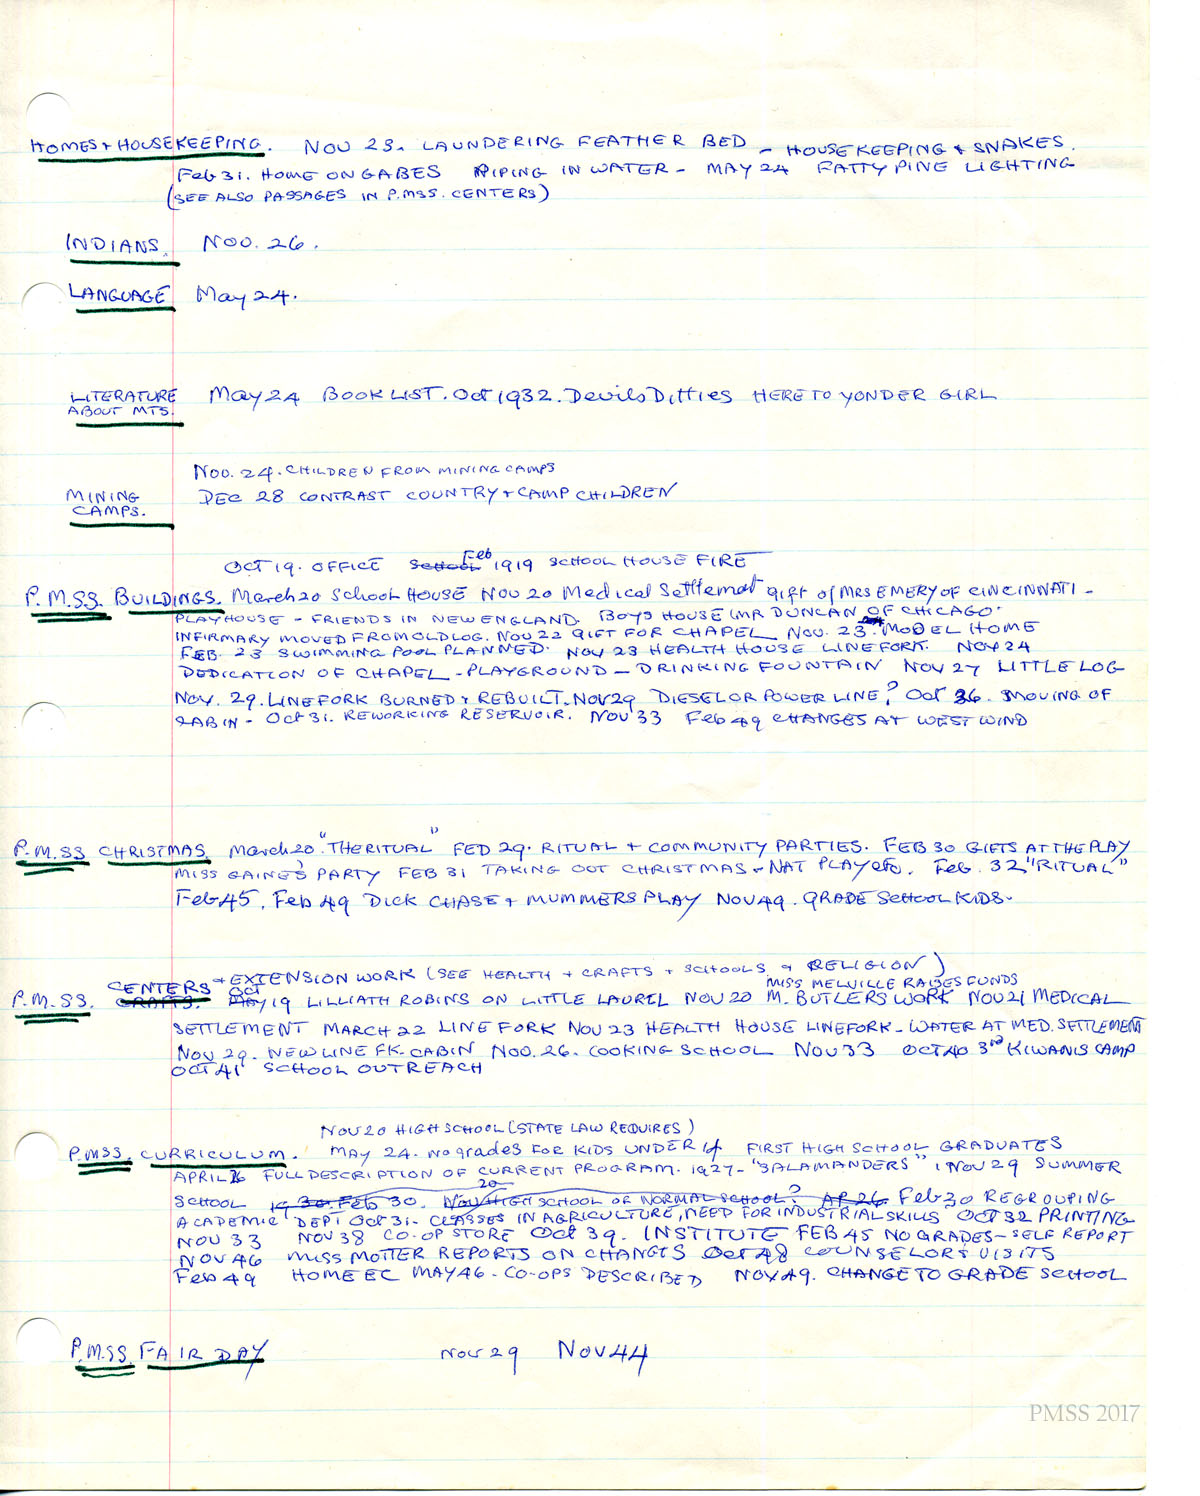 HOMES + HOUSEKEEPING. NOV 23. LAUNDERING FEATHER BED - HOUSEKEEPING + SNAKES.
Feb 31. HOME ON GABES PIPING IN WATER - MAY 24 FATTY PINE LIGHTING
(SEE ALSO PASSAGES IN P.MSS. CENTERS)
INDIANS. NOV. 26.
LANGUAGE May 24.
LITERATURE May 24 BOOK LIST. Oct 1932. Devils Ditties HERE TO YONDER GIRL
ABOUT MTS.
NOV. 24. CHILDREN FROM MINING CAMPS
MINING DEC 28 CONTRAST COUNTRY + CAMP CHILDREN
CAMPS.
OCT 19. OFFICE School Feb 1919 SCHOOL HOUSE FIRE
P.M.S.S. BUILDINGS. March 20 School HOUSE NOV 20 Medical Settlemat gift of MRS EMERY OF CINCINNATI -
PLAYHOUSE - FRIENDS IN NEW ENGLAND. BOYS HOUSE (MR DUNCAN OF CHICAGO.
INFIRMARY MOVED FROM OLD LOG. NOV 22 GIFT FOR CHAPEL NOV. 23. MODEL HOME
FEB. 23 SWIMMING POOL PLANNED. NOV 23 HEALTH HOUSE LINEFORK. NOV 24
DEDICATION OF CHAPEL - PLAYGROUND - DRINKING FOUNTAIN NOV 27 LITTLE LOG
NOV. 29. LINEFORK BURNED + REBUILT. NOV 29 DIESEL OR POWER LINE? Oct 36. MOVING OF
CABIN - Oct 31. REWORKING RESERVOIR. NOV 33 Feb 49 CHANGES AT WEST WIND
P.M.SS CHRISTMAS. March 20 "THE RITUAL" FED 29. RITUAL + COMMUNITY PARTIES. FEB 30 GIFTS AT THE PLAY
MISS GAINES' PARTY FEB 31 TAKING OUT CHRISTMAS + NAT PLAY etc. Feb. 32 "RITUAL"
Feb 45, Feb 49 DICK CHASE + MUMMERS PLAY NOV 49. GRADE SCHOOL KIDS.
CENTERS + EXTENSION WORK (SEE HEALTH + CRAFTS + SCHOOLS + RELIGION)
MISS MELVILLE RAISES FUNDS
P.M.SS. CRAFTS. Oct MAY 19 LILLIATH ROBINS ON LITTLE LAUREL NOV 20 M. BUTLERS WORK NOV 21 MEDICAL
SETTLEMENT MARCH 22 LINE FORK NOV 23 HEALTH HOUSE LINEFORK - WATER AT MED. SETTLEMENT
NOV 29. NEW LINE FK. CABIN NOV. 26. COOKING SCHOOL NOV 33 OCT 40 3rd KIWANIS CAMP
OCT 41 SCHOOL OUTREACH
NOV 20 HIGH SCHOOL (STATE LAW REQUIRES)
P.MSS. CURRICULUM. MAY 24. No grades FOR KIDS UNDER 14 FIRST HIGH SCHOOL GRADUATES
APRIL 26 FULL DESCRIPTION OF CURRENT PROGRAM. 1927 - "SALAMANDERS" NOV 29 SUMMER
SCHOOL 19 30. Feb 30. Nov 20 HIGH SCHOOL OR NORMAL SCHOOL? AP. 26 Feb 30 REGROUPING
ACADEMIC DEPT Oct 31 - CLASSES IN AGRICULTURE, NEED FOR INDUSTRIAL SKILLS OCT 32 PRINTING
NOV 33 NOV 38 CO-OP STORE Oct 39. INSTITUTE FEB 45 NO GRADES - SELF REPORT
NOV 46 MISS MOTTER REPORTS ON CHANGES Oct 48 COUNSELORS VISITS
Feb 49 HOME EC MAY 46 - CO-OPS DESCRIBED NOV 49. CHANGE TO GRADE SCHOOL
P.M.SS. FAIR DAY Nov 29 Nov 44
PMSS 2017